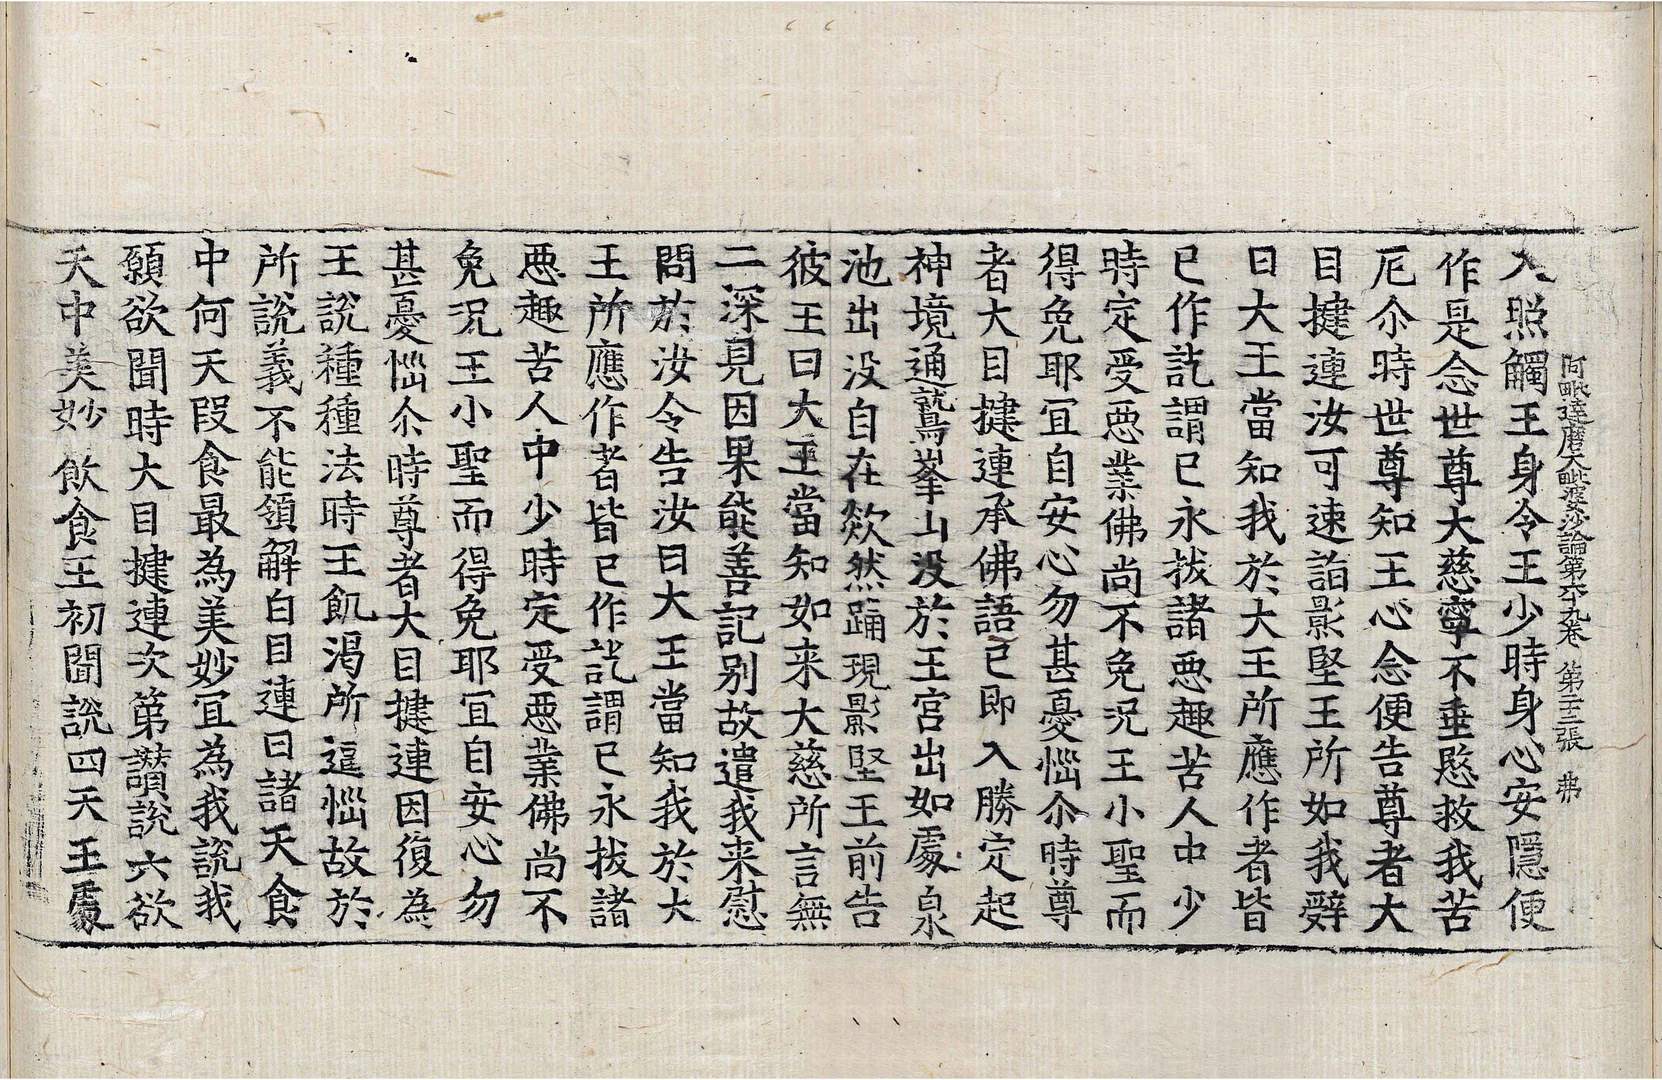 阿毗達磨大毗婆沙論第六十九卷 第十三張 弗
入照觸王身令王少時身心安隱便
作是念世尊大慈寧不垂愍救我苦
厄尒時世尊知王心念便告尊者大
目揵連汝可速詣影堅王所如我辭
曰大王當知我於大王所應作者皆
已作訖謂已永拔諸惡趣苦人中少
時定受惡業佛尚不免況王小聖而
得免耶宜自安心勿甚憂惱尒時尊
者大目揵連承佛語已即入勝定起
神境通鷲峯山没於王宮出如處泉
池出没自在欻然踊現影堅王前告
彼王曰大王當知如来大慈所言無
二深見因果能善記别故遣我来慰
問於汝令告汝曰大王當知我於大
王所應作者皆已作訖謂已永拔諸
惡趣苦人中少時定受惡業佛尚不
免況王小聖而得免耶宜自安心勿
甚憂惱尒時尊者大目揵連因復為
王說種種法時王飢渴所逼惱故於
所說義不能領解白目連曰諸天食
中何天段食最為美妙宜為我說我
願欲聞時大目揵連次第讃說六欲
天中美妙飲食王初聞說四天王處